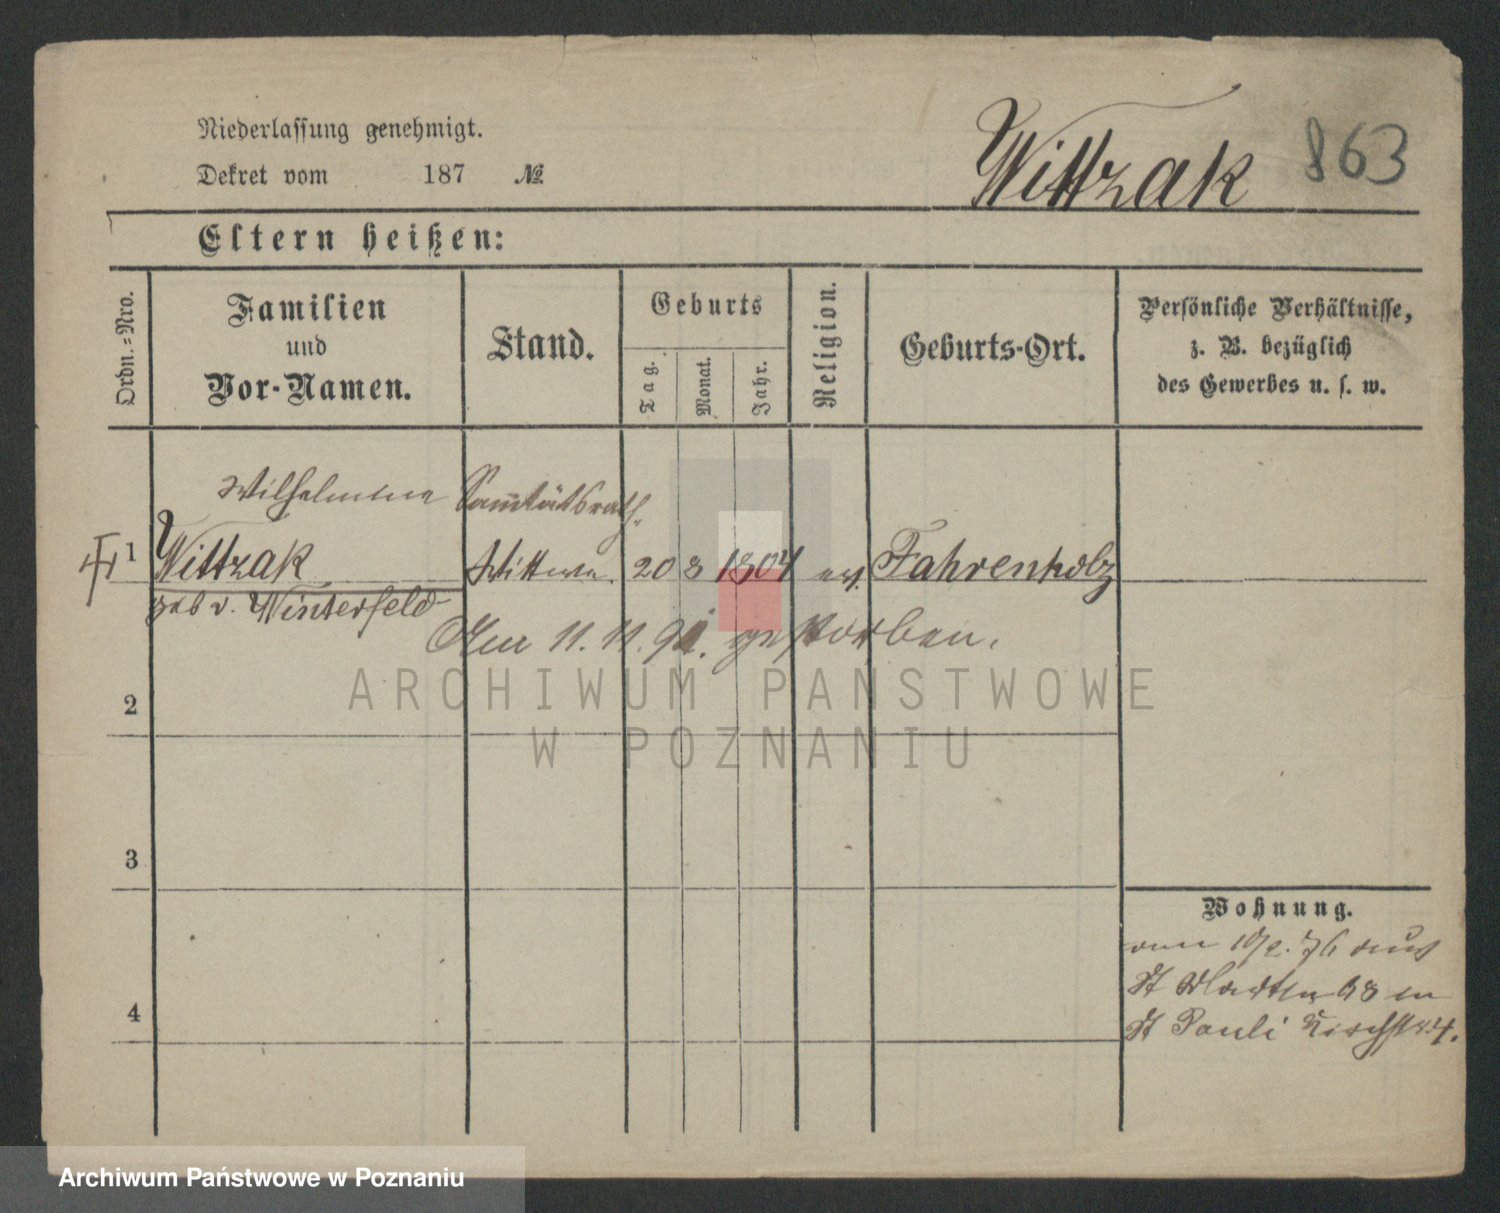 Niederlassung genehmigt.
Dekret vom 187 №
Wittzak 863
Eltern heißen:
Ordn.=Nro.
Familien
und
Vor-Namen.
Stand.
Geburts
Tag.
Monat.
Jahr.
Religion.
Geburts-Ort.
Persönliche Verhältnisse,
z. B. bezüglich
des Gewerbes u. s. w.
Wilhelmine Sanitätsrath.
1 Wittzak Wittwe. 20 8 1804 ev. Fahrenholz
geb v. Winterfeld
Am 11. 11. 91. gestorben.
ARCHIWUM PAŃSTWOWE
W POZNANIU
2
3
4
Wohnung.
76 aus
St Martin 68 in
St Pauli Kirchstr. 4.
Archiwum Państwowe w Poznaniu